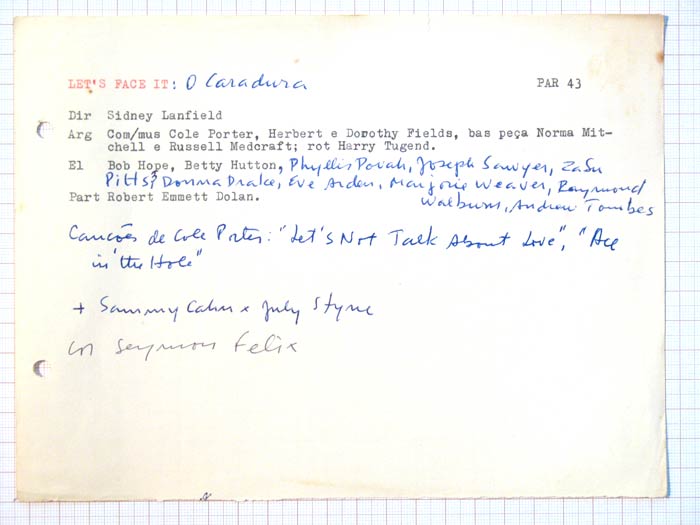 LET'S FACE IT: O Caradura PAR 43
Dir Sidney Lanfield
Arg Com/mus Cole Porter, Herbert e Dorothy Fields, bas peça Norma Mit-
chell e Russell Medcraft; rot Harry Tugend.
El Bob Hope, Betty Hutton, Phyllis Povah, Joseph Sawyer, ZaSu
Pitts, Donna Drake, Eve Arden, Marjorie Weaver, Raymond
Walburn, Andrew Tombes
Part Robert Emmett Dolan.
Canções de Cole Porter: "Let's Not Talk About Love", "Ace
in the Hole"
+ Sammy Cahn x July Styne
Seymour Felix